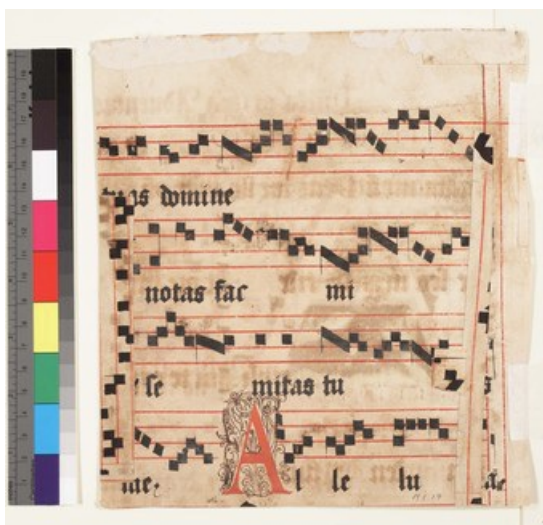 tuas domine
notas fac mi
se mitas tu s
me: A l le lu